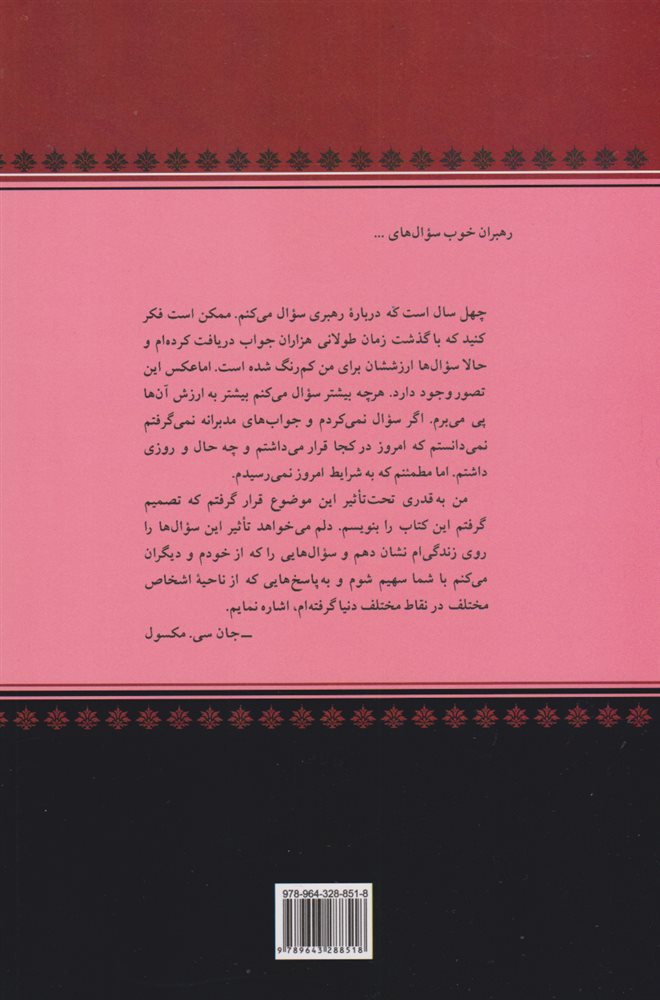 رهبران خوب سؤال‌های ...
چهل سال است که دربارهٔ رهبری سؤال می‌کنم. ممکن است فکر
کنید که با گذشت زمان طولانی هزاران جواب دریافت کرده‌ام و
حالا سؤال‌ها ارزششان برای من کم‌رنگ شده است. اما عکس این
تصور وجود دارد. هرچه بیشتر سؤال می‌کنم بیشتر به ارزش آن‌ها
پی می‌برم. اگر سؤال نمی‌کردم و جواب‌های مدبرانه نمی‌گرفتم
نمی‌دانستم که امروز در کجا قرار می‌داشتم و چه حال و روزی
داشتم. اما مطمئنم که به شرایط امروز نمی‌رسیدم.
من به‌قدری تحت‌تأثیر این موضوع قرار گرفتم که تصمیم
گرفتم این کتاب را بنویسم. دلم می‌خواهد تأثیر این سؤال‌ها را
روی زندگی‌ام نشان دهم و سؤال‌هایی را که از خودم و دیگران
می‌کنم با شما سهیم شوم و به‌پاسخ‌هایی که از ناحیهٔ اشخاص
مختلف در نقاط مختلف دنیا گرفته‌ام، اشاره نمایم.
ــ جان سی. مکسول
978-964-328-851-8
9 789643 288518